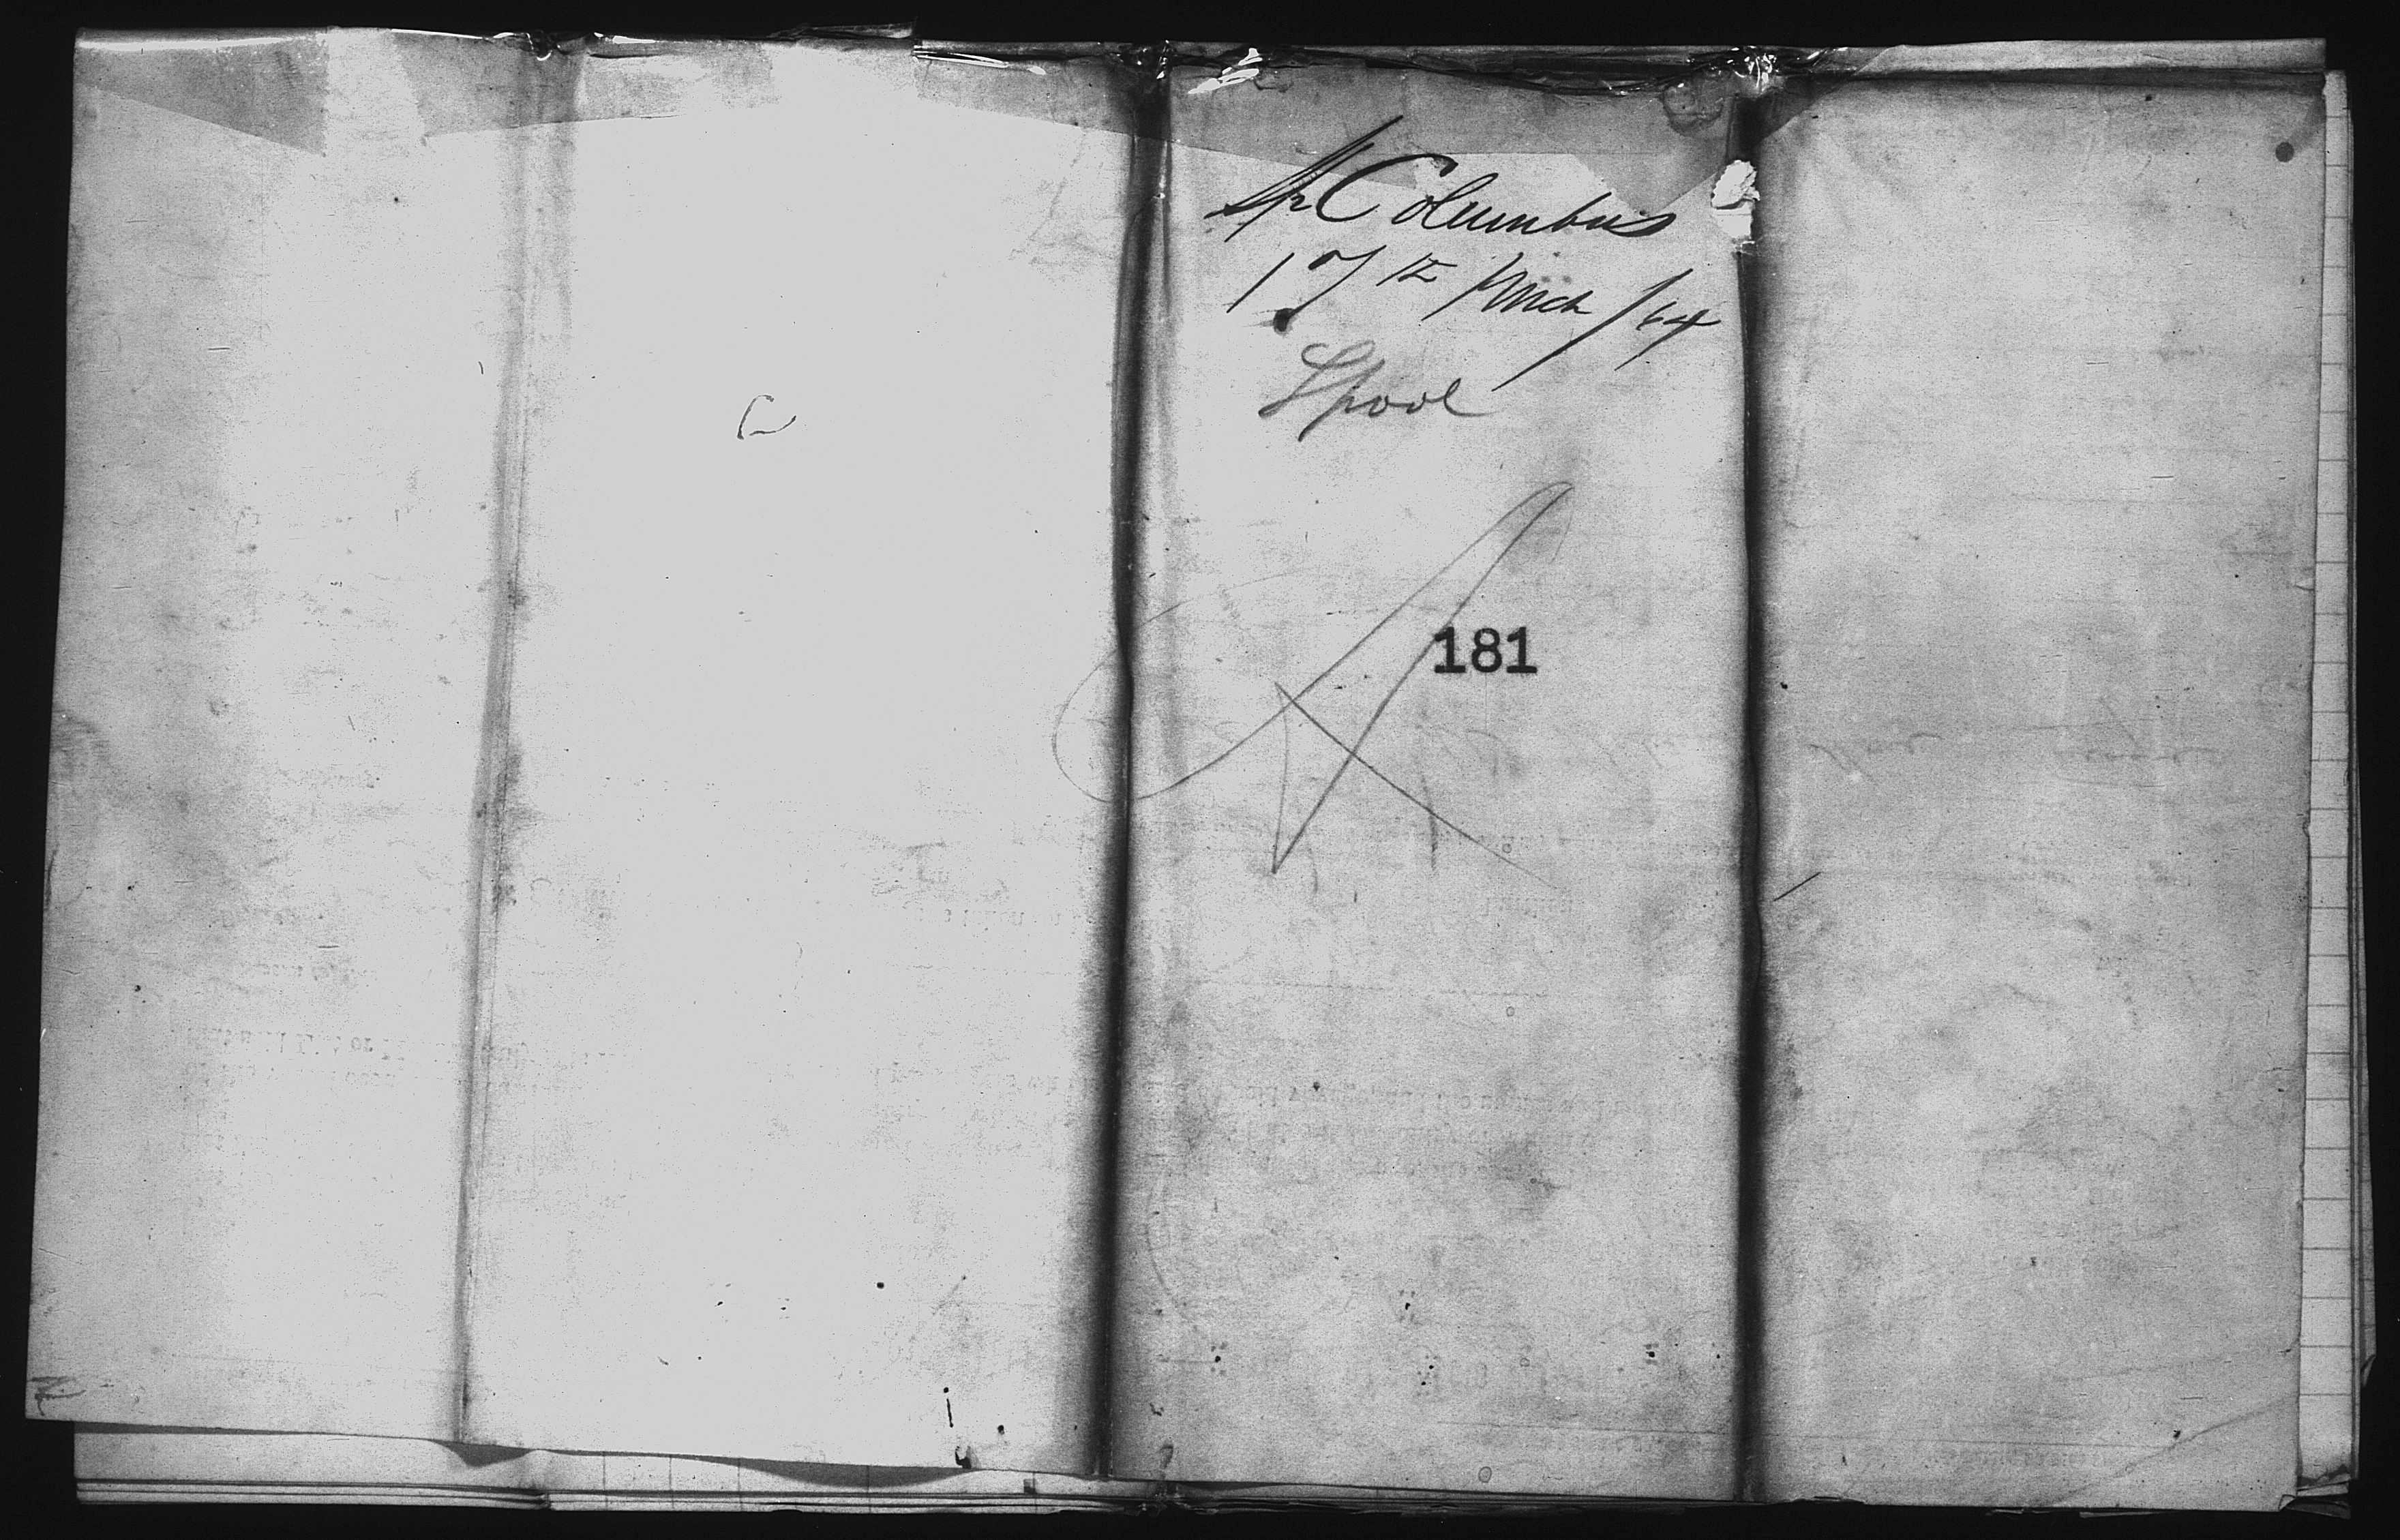 Sp Columbus
17th Mch /64
Lpool
A
181